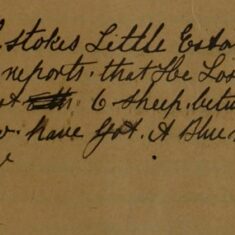 Stokes Little Eato
reports. that He Los
6 Sheep. betw
have Got. A Blue